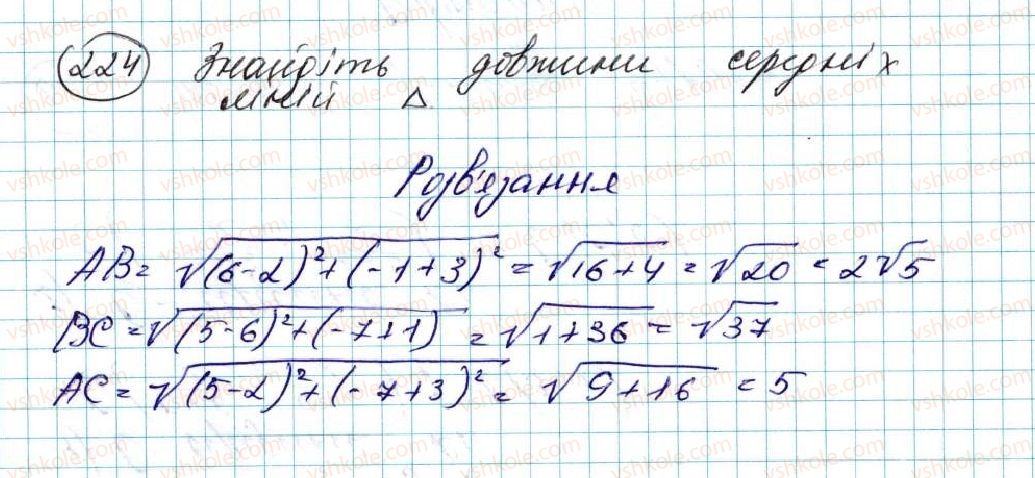 224 Знайдіть довжини середніх
ліній Δ.
Розв'язання
AB = √((6-2)²+(-1+3)²) = √(16+4) = √20 = 2√5
BC = √((5-6)²+(-7+1)) = √(1+36) = √37
AC = √((5-2)²+(-7+3)²) = √(9+16) = 5